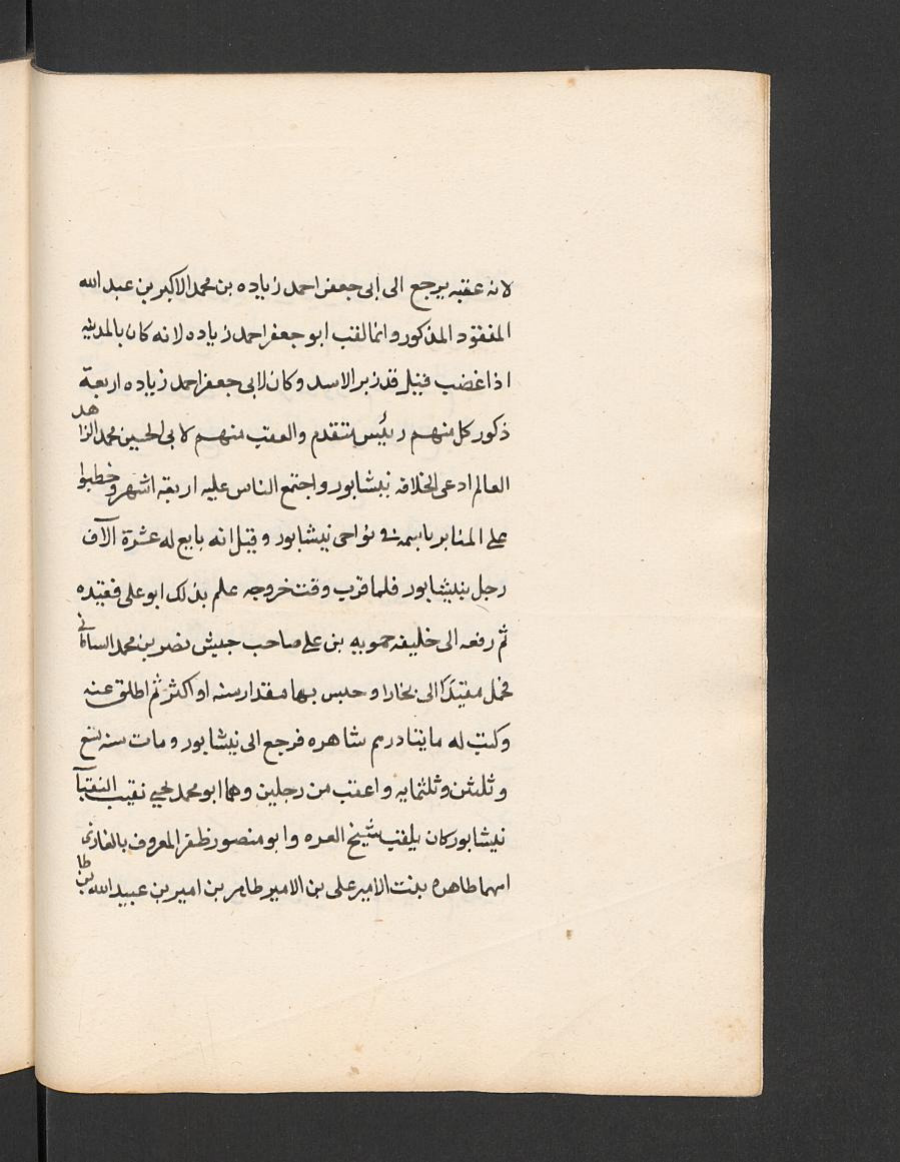 لانه عقبه يرجع الى ابى جعفر احمد زياده بن محمد الاكبر بن عبد الله
المفقود المذكور وانما لقب ابو جعفر احمد زياده لانه كان بالمدينه
اذا غضب قيل قد زبر الاسد وكان لابى جعفر احمد زياده اربعة
ذكور كل منهم رئيس متقدم والعقب منهم لابى الحسين محمد الزاهد
العالم ادعى الخلافه نيشابور واجتمع الناس عليه اربعه اشهر وخطبوا
على المنابر باسمه فى نواحى نيشابور وقيل انه بايع له عشرة آلاف
رجل بنيشابور فلما قرب وقت خروجه علم بذلك ابو على فقيده
ثم رفعه الى خليفه حمويه بن على صاحب جيش نصر بن محمد السامانى
فحمل مقيدًا الى بخارا وحبس بها مقدار سنه او اكثر ثم اطلق عنه
وكتب له مايتا درهم مشاهره فرجع الى نيشابور ومات سنه تسع
وثلثين وثلثمايه واعقب من رجلين وهما ابو محمد يحيى نقيب النقبآ
نيشابور كان يلقب شيخ العتره وابو منصور ظفر المعروف بالغازى
امهما طاهره بنت الامير على بن الامير طاهر بن امير بن عبيد الله بن طا